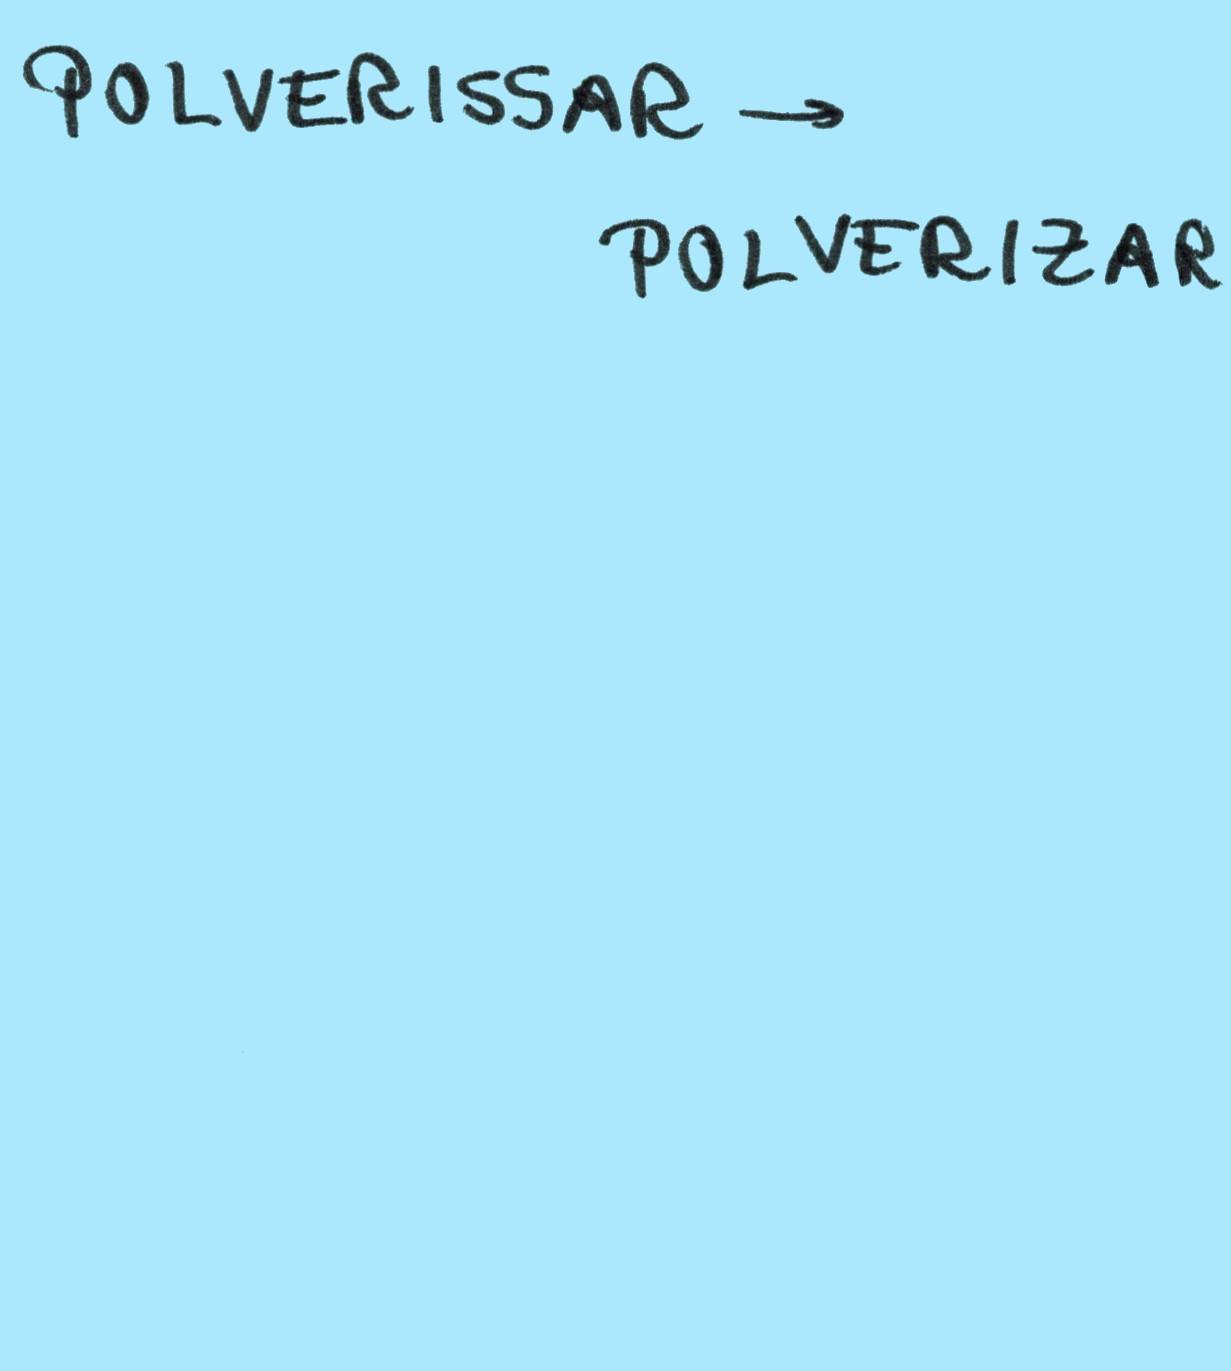 POLVERISSAR →
POLVERIZAR